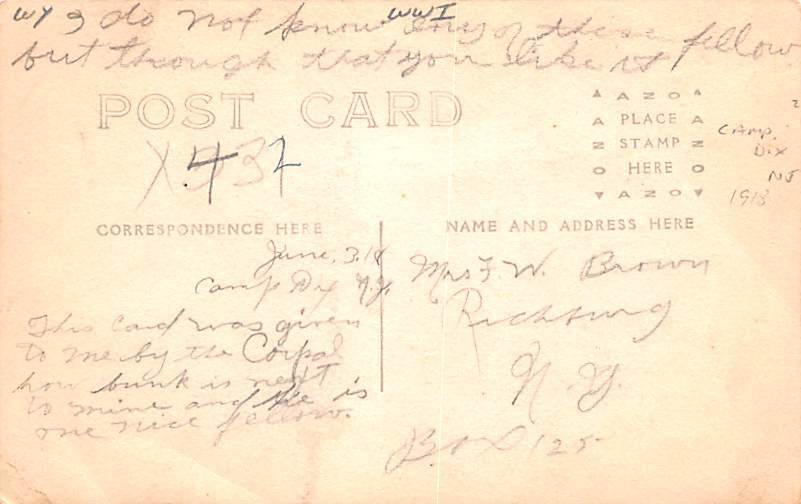 WY I do not know any of these fellow
WWI
but though that you like it
POST CARD
AZO
PLACE
STAMP
HERE
AZO
Camp
Dix
NJ
1918
CORRESPONDENCE HERE
NAME AND ADDRESS HERE
June, 3.18
Camp Dix N.J.
This Card was given
to me by the Corpal
how bunk is next
to mine and he is
one nice fellow.
Mrs F. W. Brown
Richburg
N.Y.
Box 125